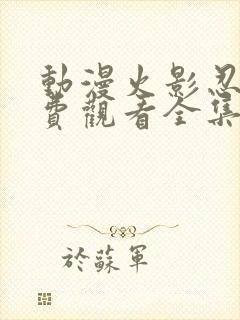 動漫火影忍
費觀看全集
於蘇軍